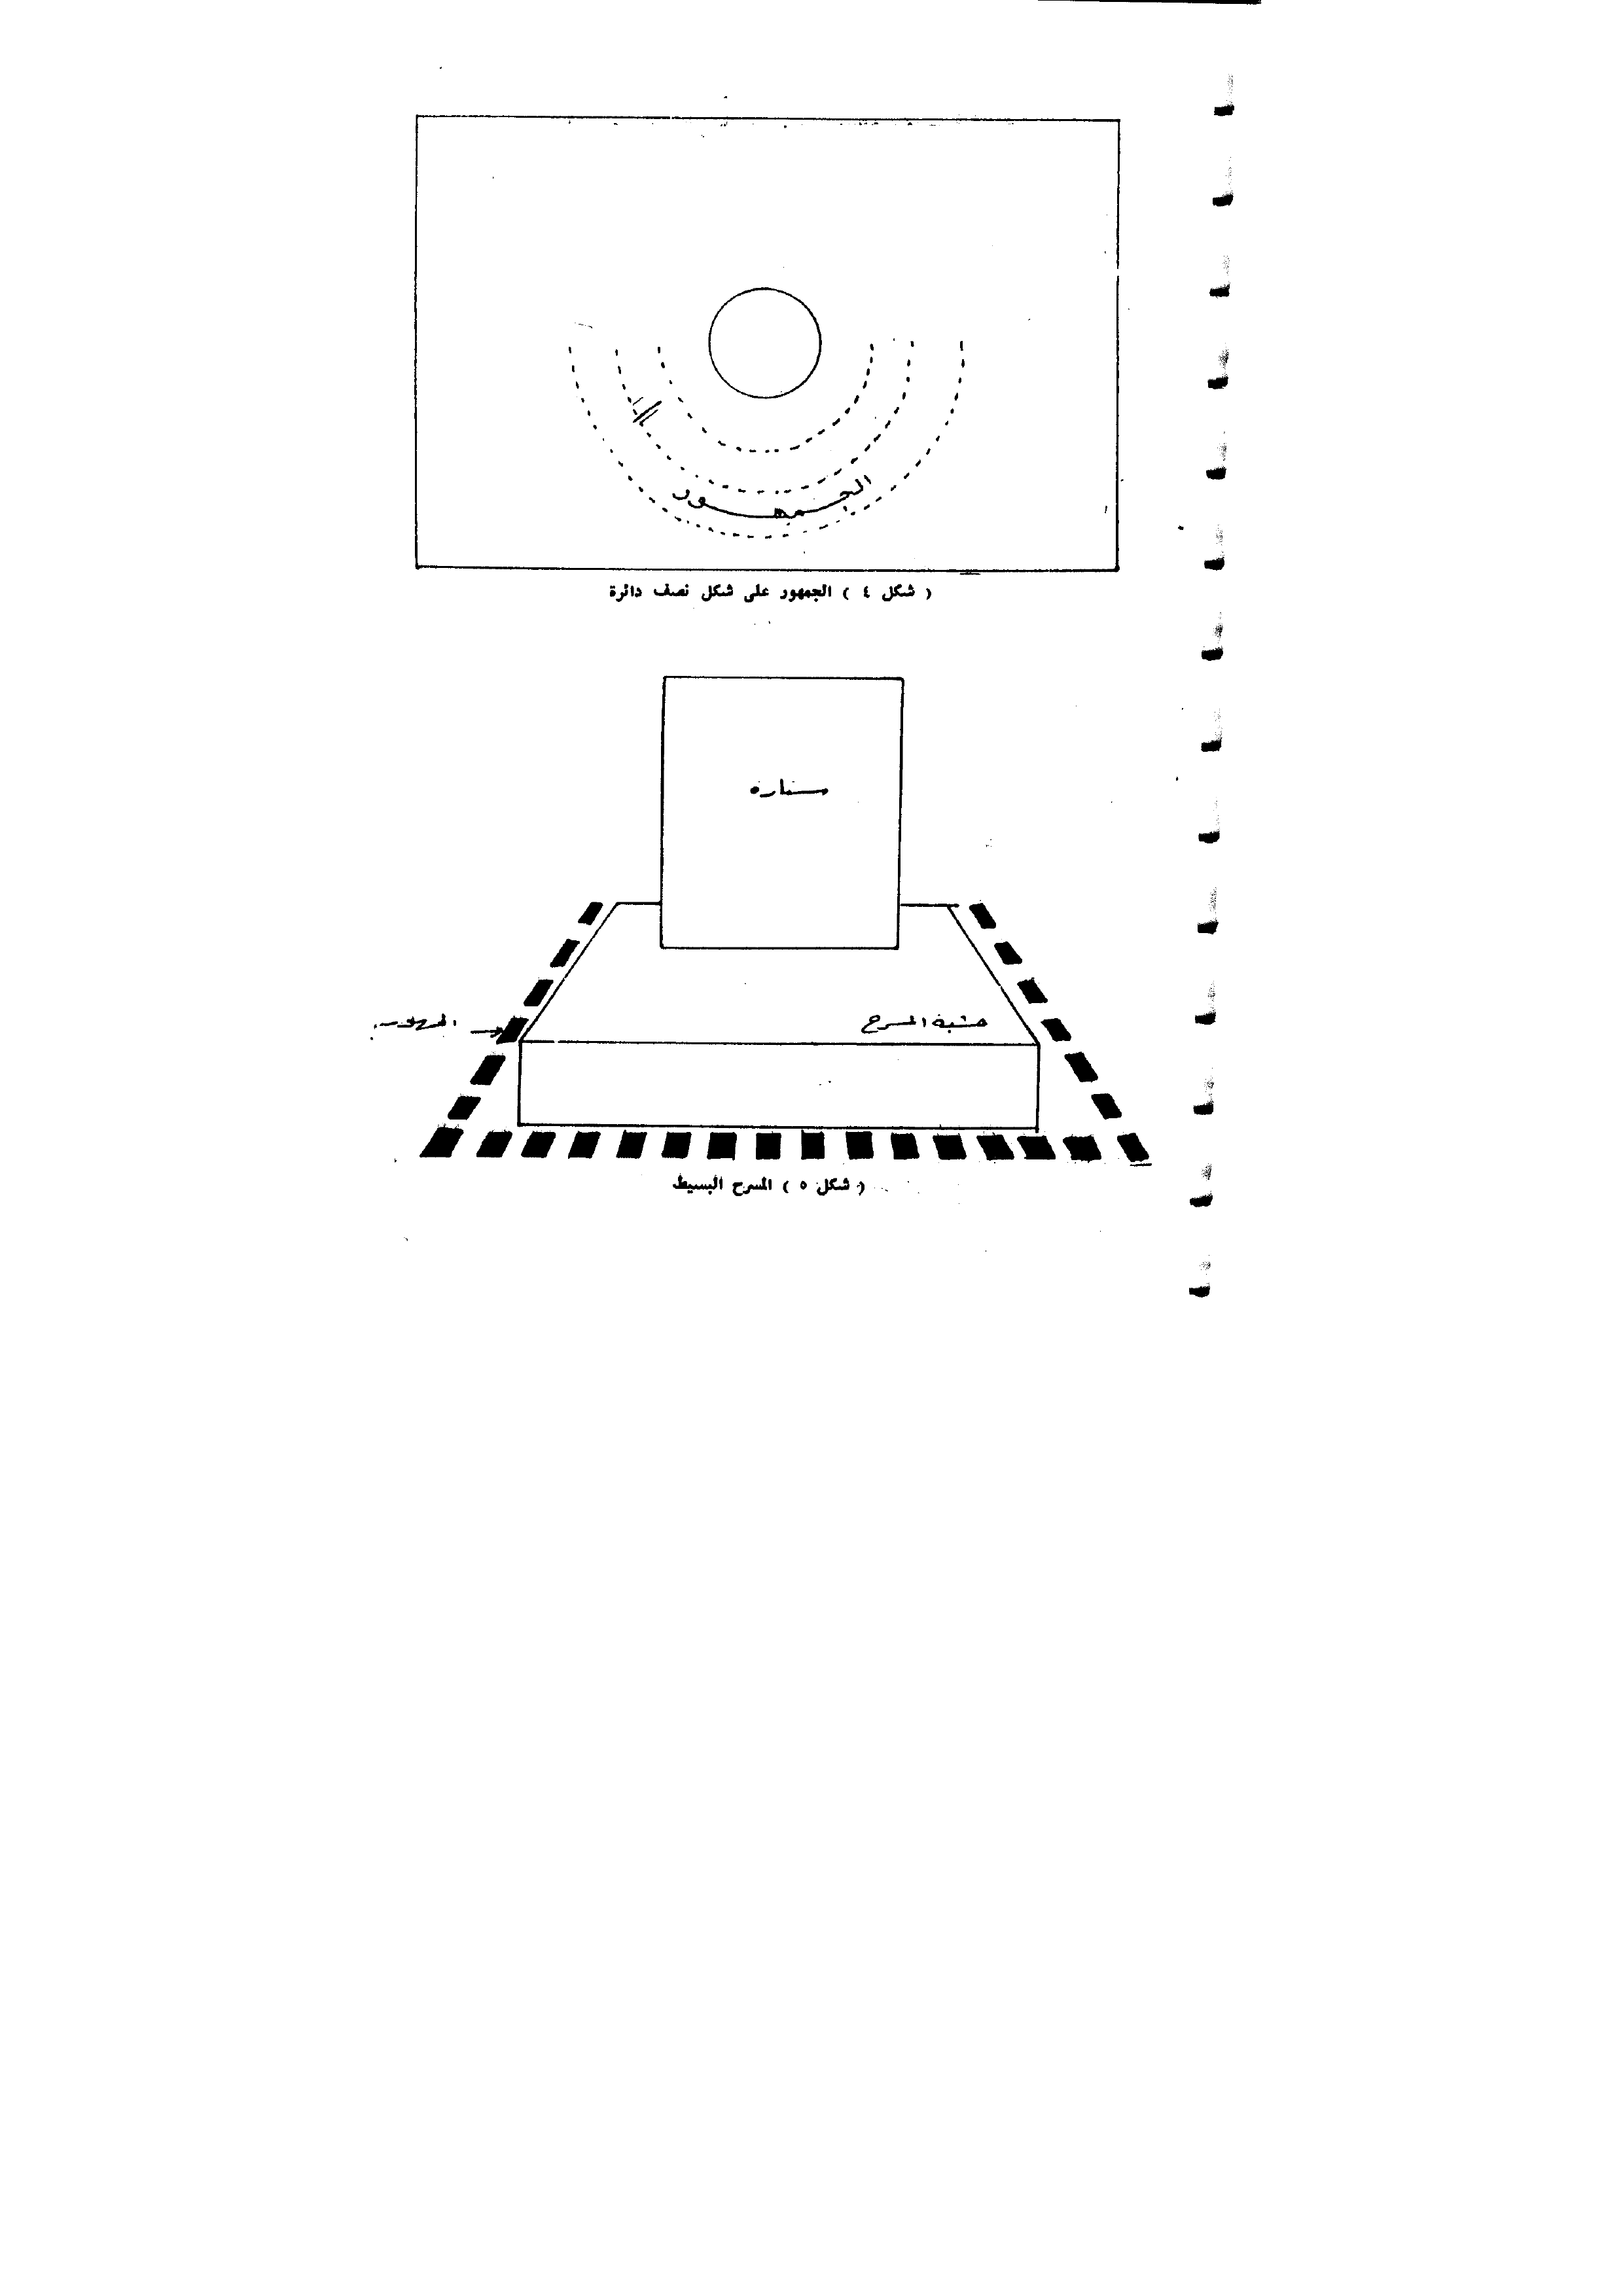 الجمهور
( شكل ٤ ) الجمهور على شكل نصف دائرة
ستاره
خشبة المسرح
الجمهور
( شكل ٥ ) المسرح البسيط